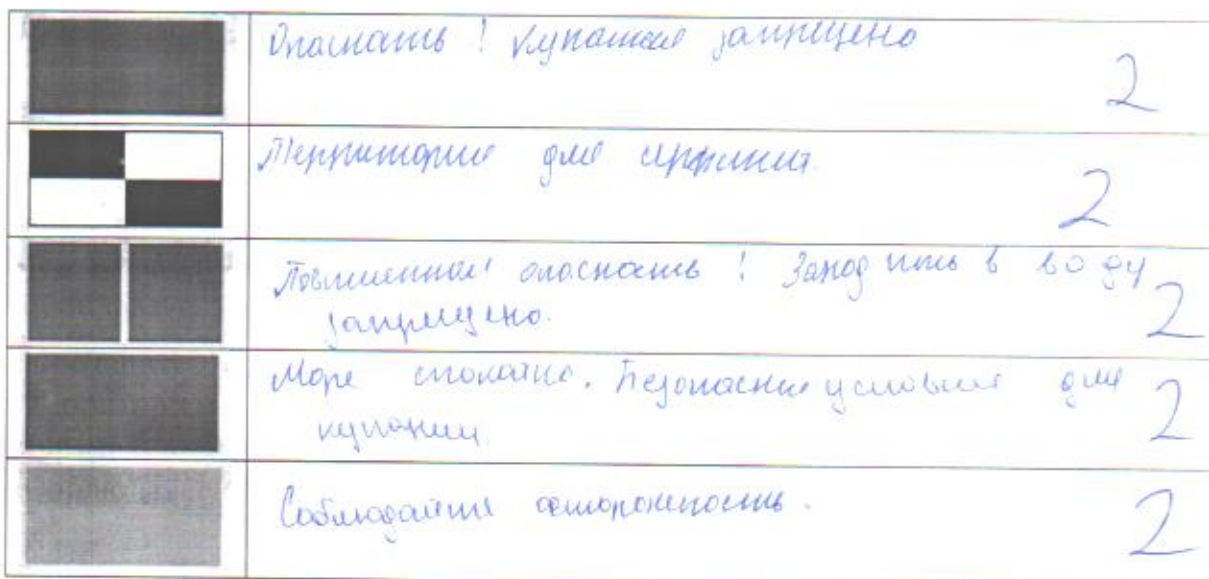 Опасность! Купание запрещено
2
Территория для серфинга.
2
Повышенная опасность! Заходить в воду
запрещено.
2
Море спокойно. Безопасные условия для
купания
2
Соблюдайте осторожность.
2